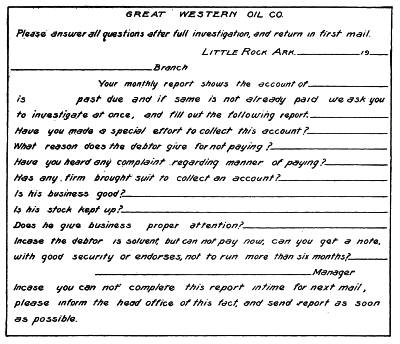 GREAT WESTERN OIL CO.
Please answer all questions after full investigation, and return in first mail.
LITTLE ROCK ARK. 19
Branch
Your monthly report shows the account of
is past due and if same is not already paid we ask you
to investigate at once, and fill out the following report.
Have you made a special effort to collect this account?
What reason does the debtor give for not paying?
Have you heard any complaint regarding manner of paying?
Has any firm brought suit to collect an account?
Is his business good?
Is his stock kept up?
Does he give business proper attention?
Incase the debtor is solvent, but can not pay now, can you get a note,
with good security or endorses, not to run more than six months?
Manager
Incase you can not complere this report intime for next mail,
please inform the head office of this fact, and send report as soon
as possible.